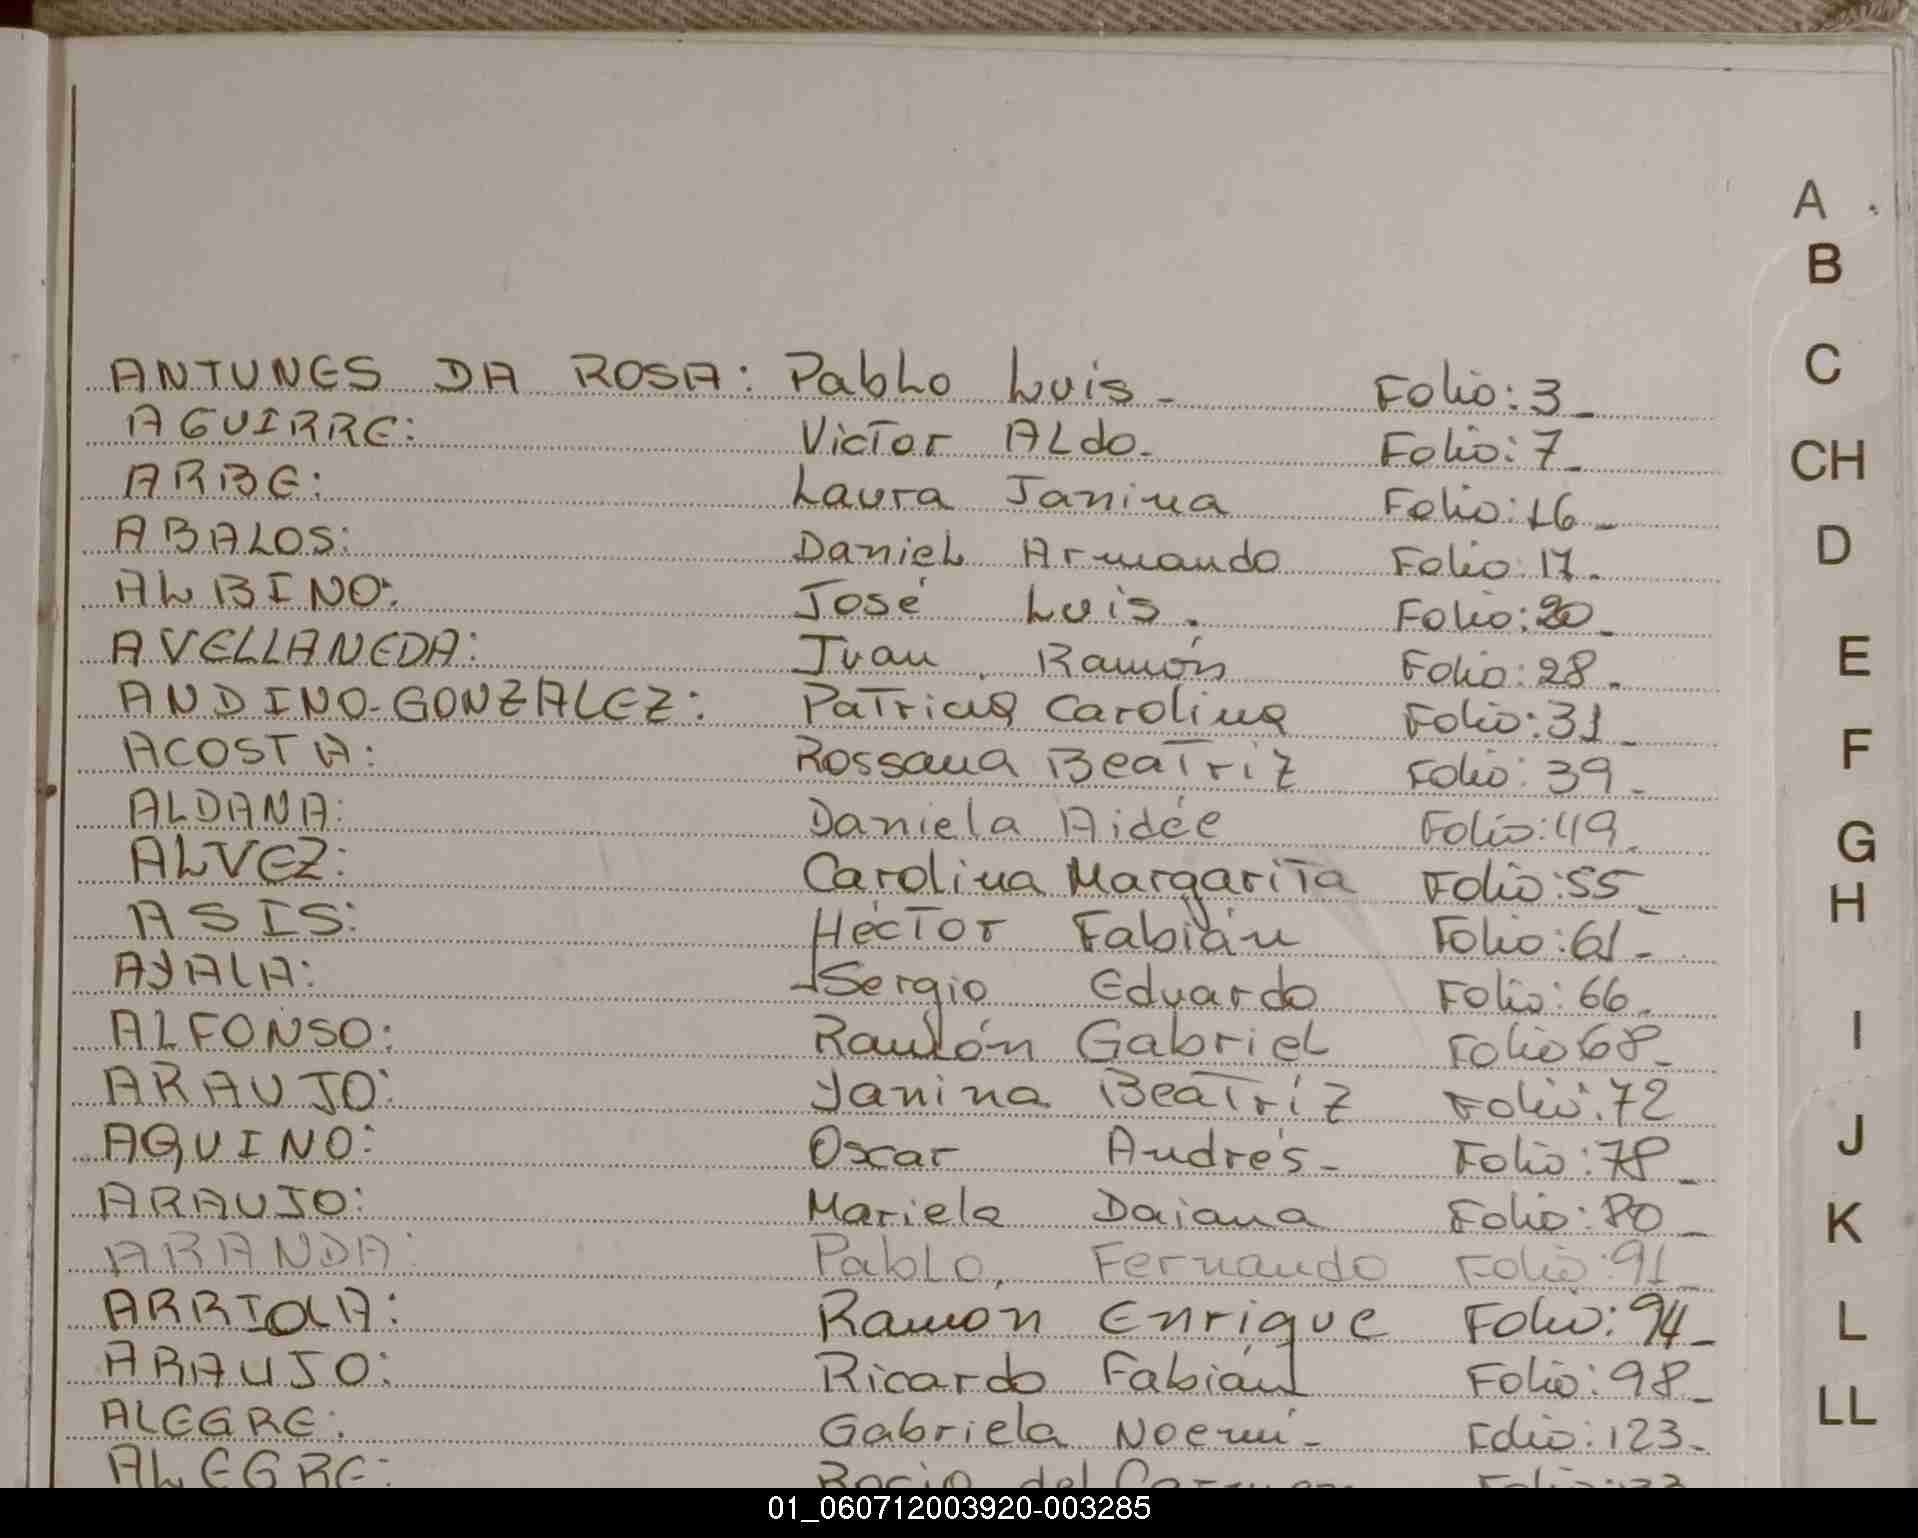 ANTUNES DA ROSA: Pablo Luis - Folio: 3 -
AGUIRRE: Victor Aldo. Folio: 7 -
ARBE: Laura Janina Folio: 16 -
ABALOS: Daniel Armando Folio: 17 -
ALBINO: José Luis. Folio: 20 -
AVELLANEDA: Juan Ramón Folio: 28 -
ANDINO-GONZALEZ: Patricia Carolina Folio: 31 -
ACOSTA: Rossana Beatriz Folio: 39 -
ALDANA: Daniela Aidée Folio: 49 -
ALVEZ: Carolina Margarita Folio: 55 -
ASIS: Héctor Fabián Folio: 61 -
AYALA: Sergio Eduardo Folio: 66 -
ALFONSO: Ramón Gabriel Folio 68 -
ARAUJO: Yanina Beatriz Folio: 72
AQUINO: Oscar Andrés - Folio: 78 -
ARAUJO: Mariela Daiana Folio: 80 -
ARANDA: Pablo Fernando Folio: 91 -
ARRIOLA: Ramón Enrique Folio: 94 -
ARAUJO: Ricardo Fabián Folio: 98 -
ALEGRE: Gabriela Noemí - Folio: 123 -
ALEGRE: Rocio del Carmen Folio:
A
B
C
CH
D
E
F
G
H
I
J
K
L
LL
01_060712003920-003285